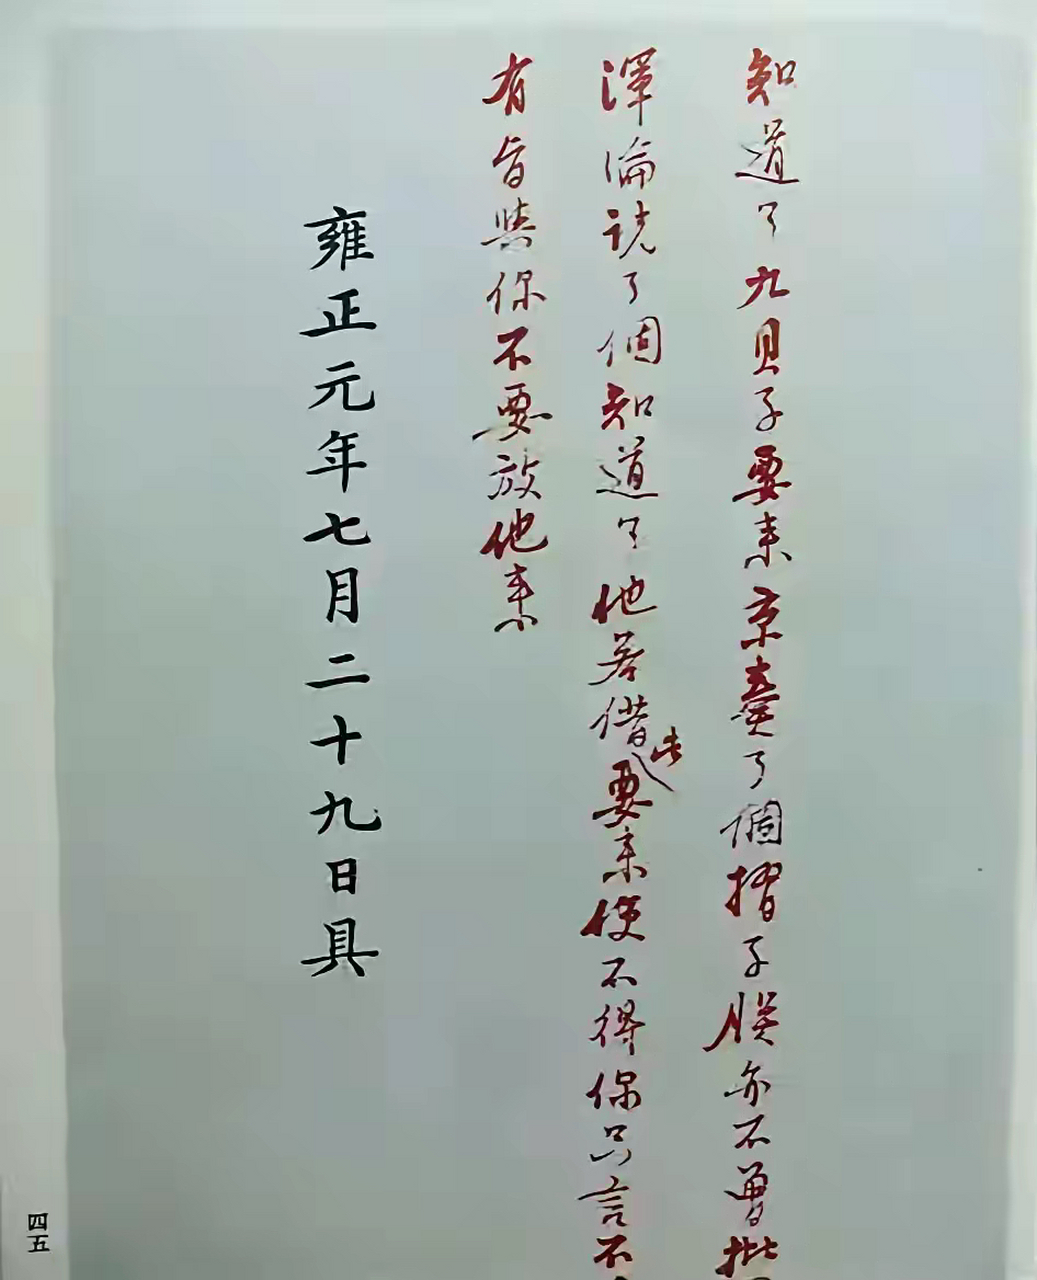 知道了九貝子要来京奏了個摺子朕亦不曾批
渾淪説了個知道了他若借此要来使不得你只言不
有旨與你不要放他来
雍正元年七月二十九日具
四五